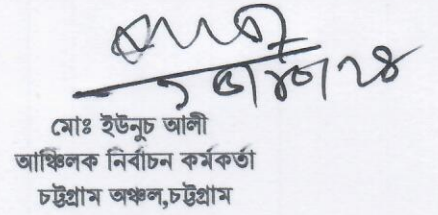 মোঃ ইউনুচ আলী
আঞ্চিলক নির্বাচন কর্মকর্তা
চট্টগ্রাম অঞ্চল,চট্টগ্রাম